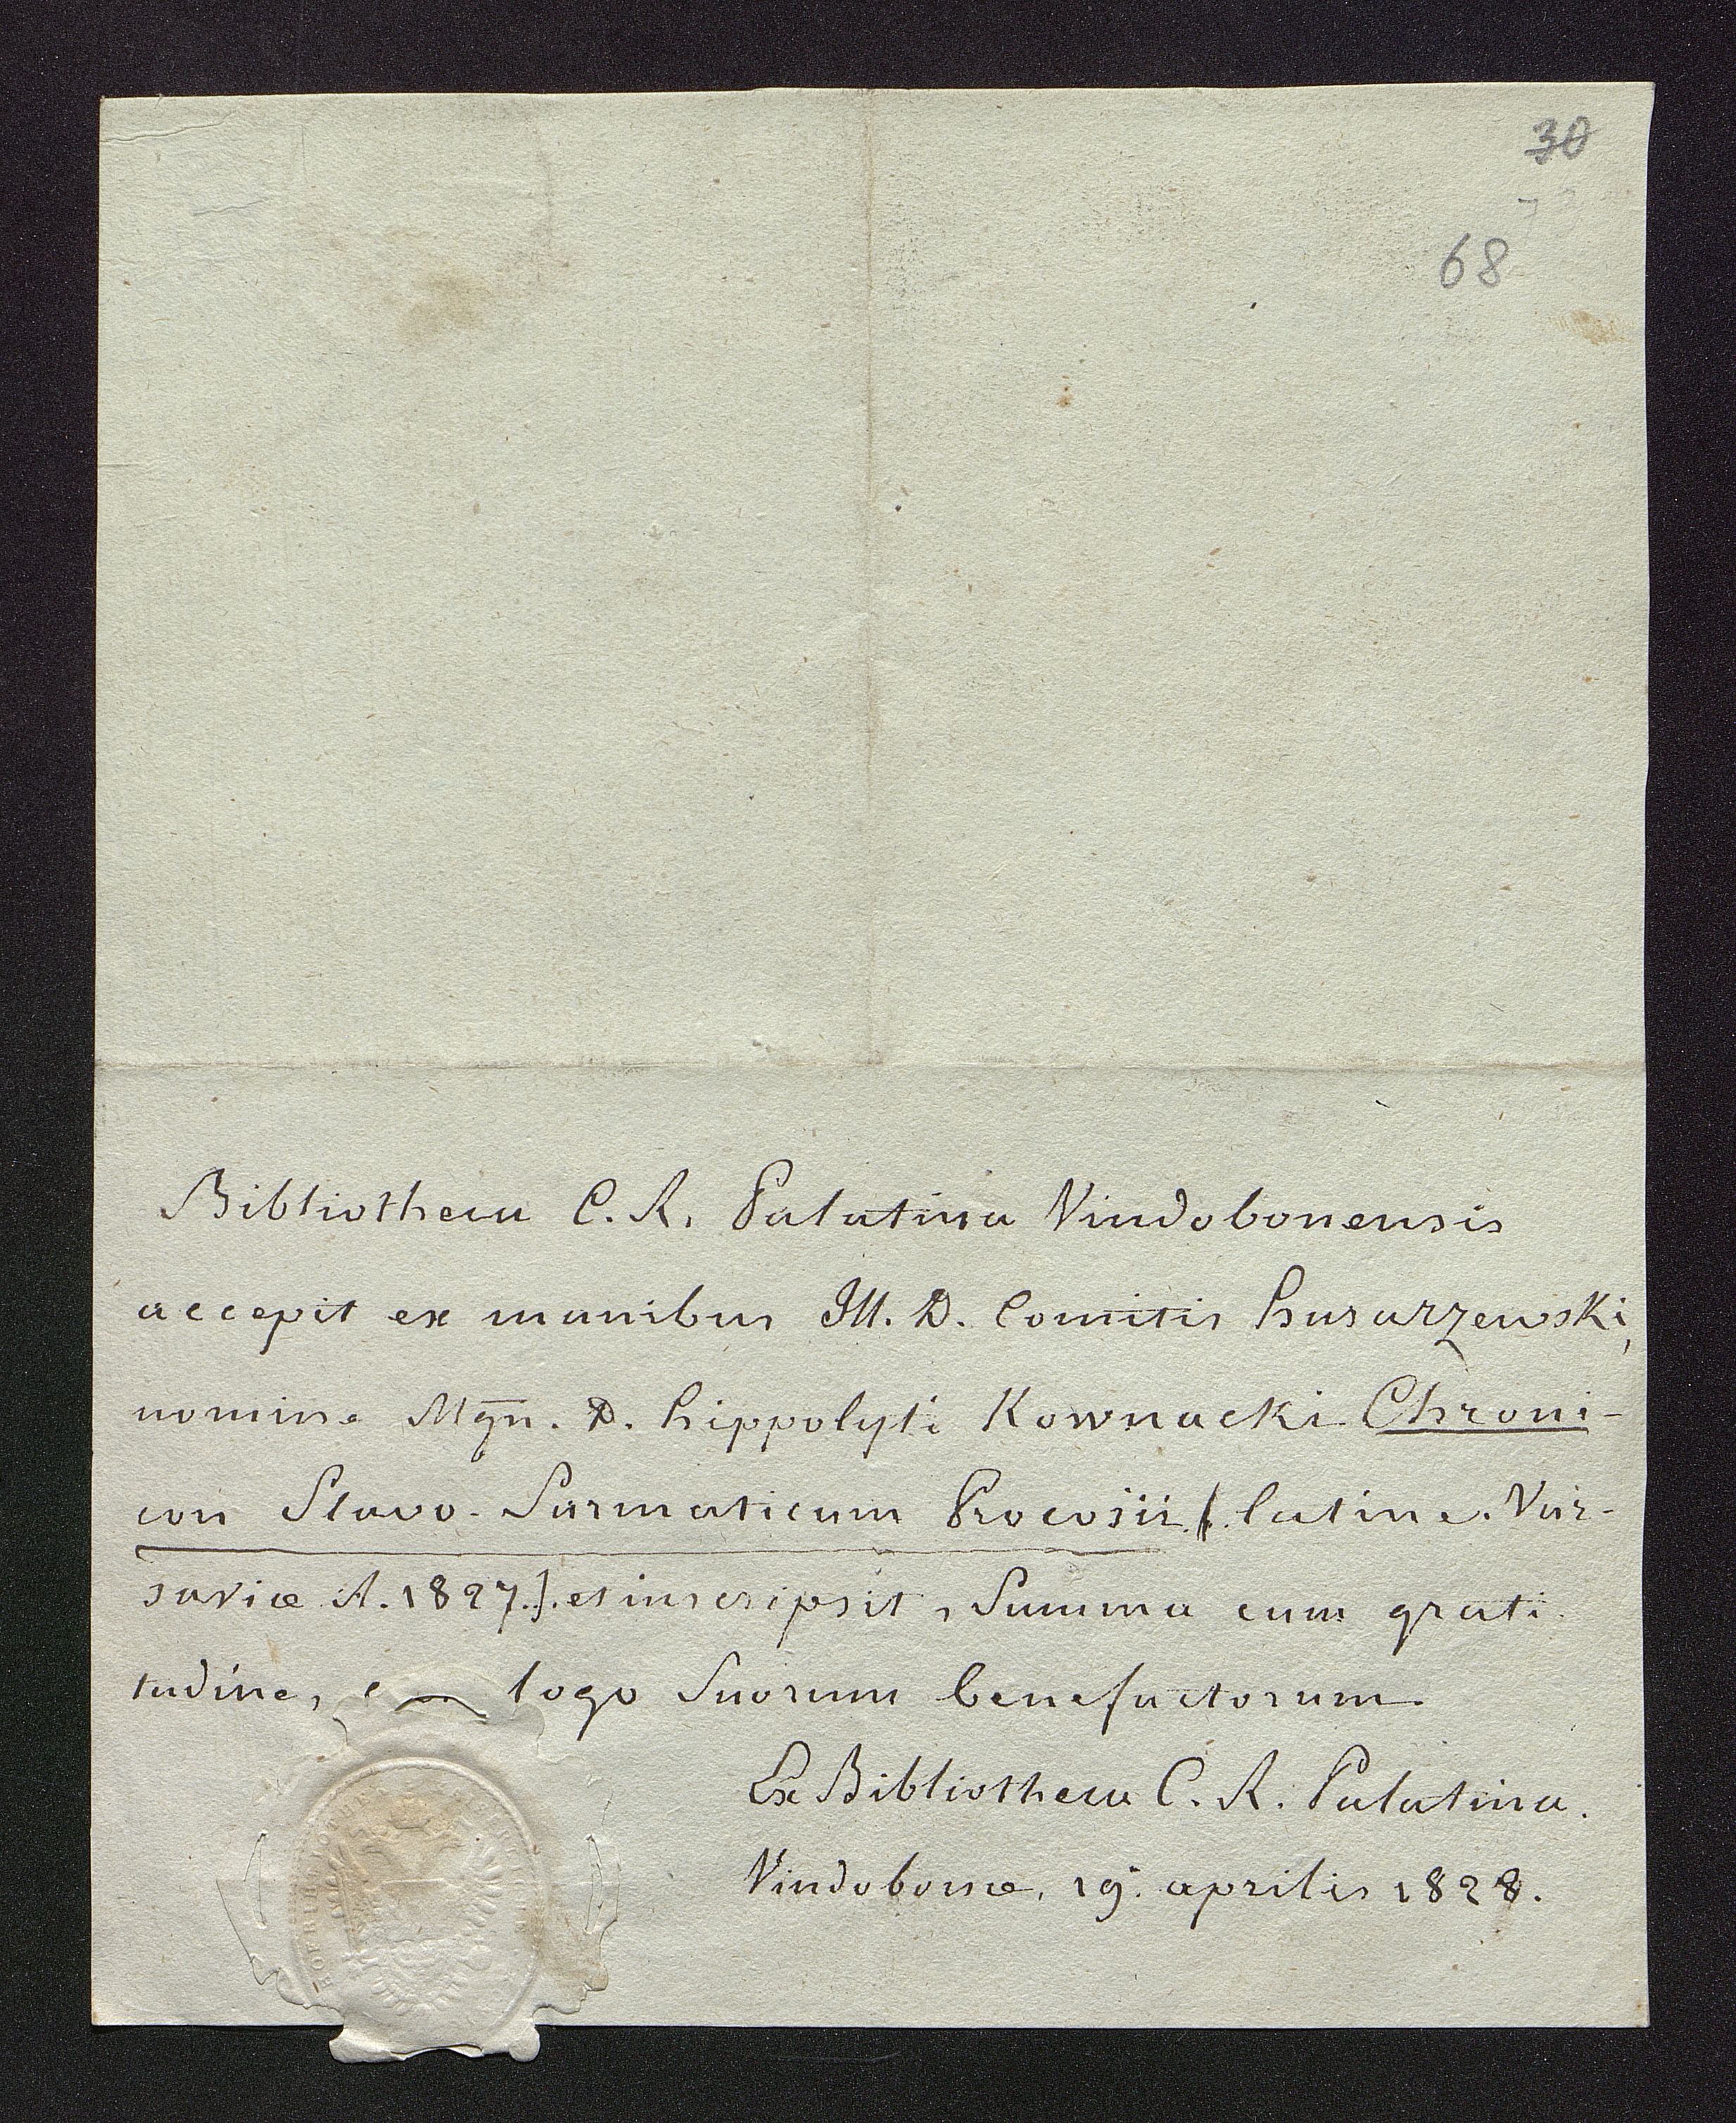 30
68
Bibliotheca C. R. Palatina Vindobonensis
accepit ex manibus Ill. D. Comitis Husarzewski,
nomine Mgn. D. Hippolyti Kownacki Chroni-
con Slavo-Sarmaticum Procosii [. latine. Var-
saviæ A. 1827.]. et inscripsit, Summa cum grati
tudine, logo Suorum benefactorum
Ex Bibliotheca C. R. Palatina.
Vindobonæ, 19. aprilis 1828.